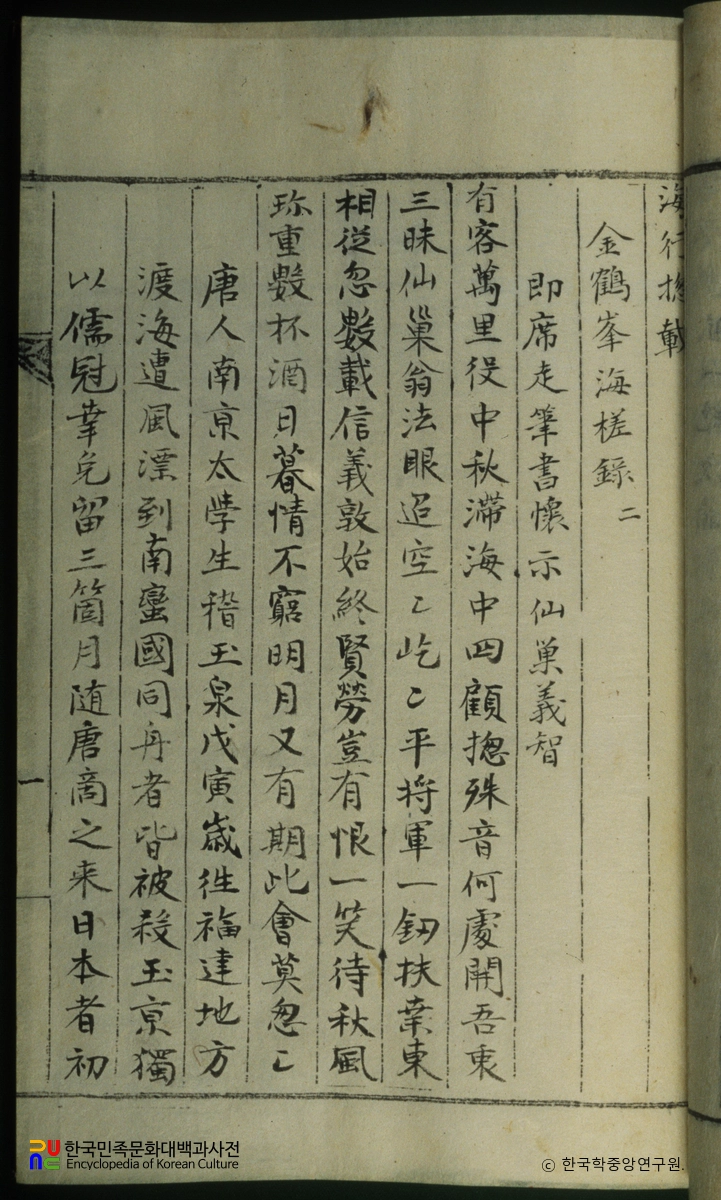 海行摠載
金鶴峯海槎錄 二
即席走筆書懷示仙巢義智
有客萬里役中秋滯海中四顧摠殊音何處開吾衷
三昧仙巢翁法眼迢空〻屹〻平將軍一釰扶桒東
相從忽數載信義敦始終賢勞豈有恨一笑待秋風
珎重數杯酒日暮情不窮明月又有期此會莫怱〻
唐人南京太學生稽玉泉戊寅歲徃福建地方
渡海遭風漂到南蠻國同舟者皆被殺玉京獨
以儒冠幸免留三箇月随唐商之来日本者初
一
한국민족문화대백과사전
Encyclopedia of Korean Culture
ⓒ 한국학중앙연구원.